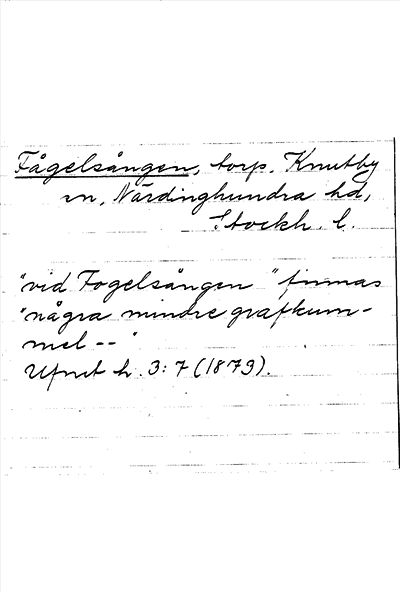 Fågelsången, torp. Knutby
sn, Närdinghundra hd,
Stockh. l.
"vid Fogelsången" finnas
"några mindre grafkum-
mel --"
Ufmt h. 3:7 (1879).